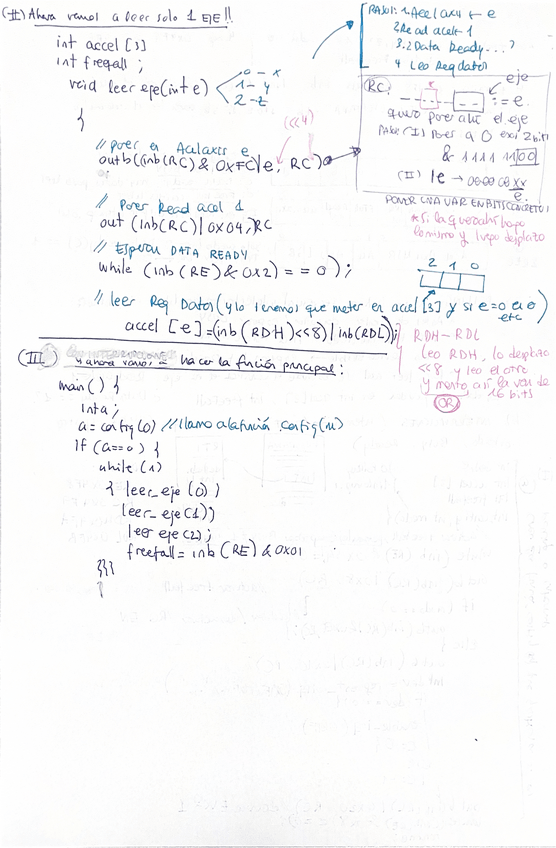 (II) Ahora vamos a leer solo 1 EJE!!
int accel [3]
int freefall ;
void leer eje (int e)
0 - x
1 - y
2 - z
{
// poner en Acelaxis e
outb((inb(RC) & 0xFC)|e, RC)
(<<4)
// Poner Read acel 1
out (inb(RC) | 0x04, RC
// Esperar DATA READY
while (inb (RE) & 0x2) == 0);
// leer Reg Datos (y lo tenemos que meter en accel [3] y si e=0 a 0
etc
accel [e] = (inb(RDH) <<8) | inb(RDL));
PASOS: 1. Acel axis ← e
2 Read acel ← 1
3. ¿Data Ready...?
4 Leo Reg datos
RC:
eje
:= e.
quiero poner ahí el eje
PARA (I) Pones a 0 esos 2 bits
& 1111 1100
(II) |e → 000000xx
e
PONER UNA VAR EN BITS CONCRETOS!
*si la quero bajo
lo mismo y luego desplazo
2 1 0
RDH - RDL
leo RDH, lo desplazo
<<8 y leo el otro
y monto así la var de
16 bits
(OR)
(III) y ahora vamos a hacer la función principal:
main() {
int a;
a = config(0) // llamo a la función config(n)
if (a==0) {
while (1)
{ leer_eje (0) ;
leer_eje (1) ;
leer eje (2) ;
freefall = inb (RE) & 0x01
}}}